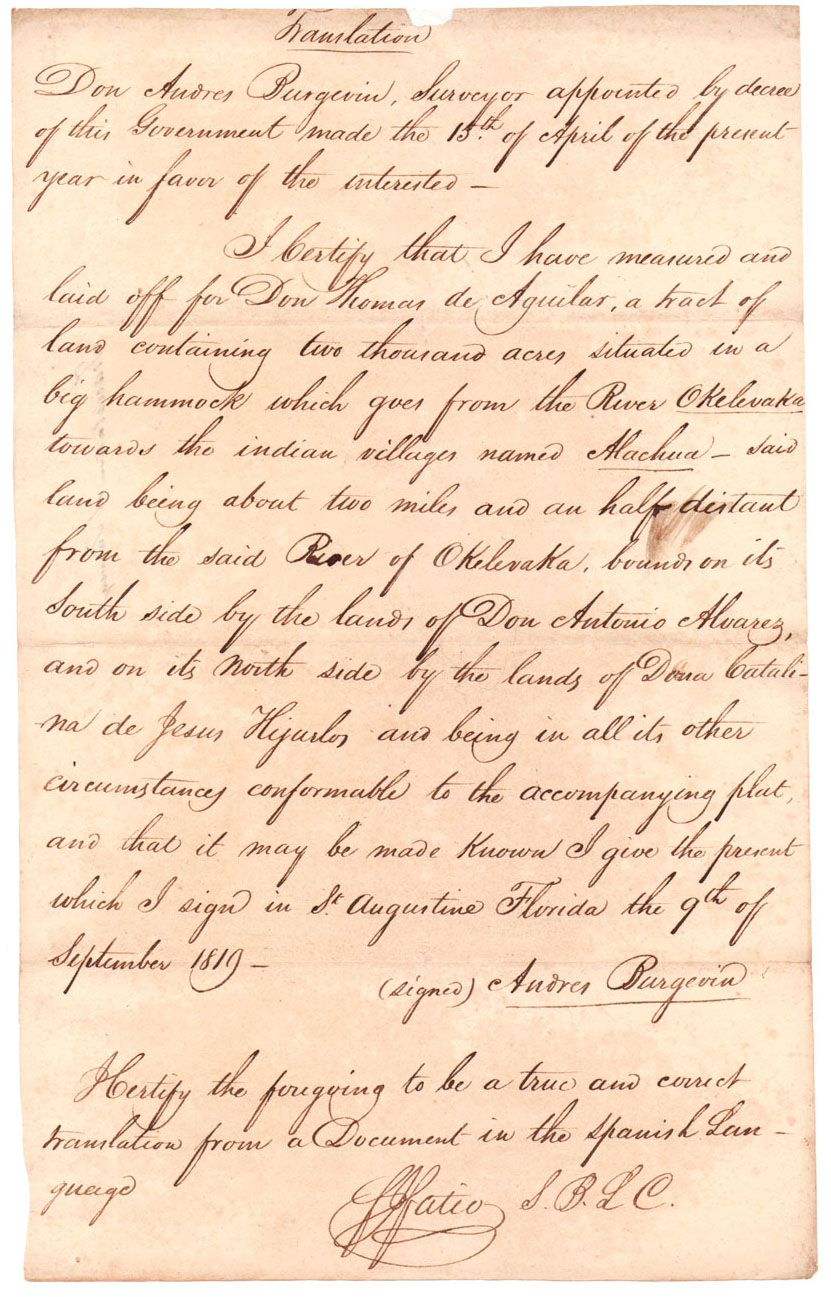 Translation
Don Andres Burgevin, Surveyor appointed by decree
of this Government made the 15th. of April of the present
year in favor of the interested —
I Certify that I have measured and
laid off for Don Thomas de Aguilar, a tract of
land containing two thousand acres situated in a
big hammock which goes from the River Okelevaka
towards the indian villages named Alachua — said
land being about two miles and an half distant
from the said River of Okelevaka, bounds on its
South side by the lands of Don Antonio Alvarez,
and on its North side by the lands of Dona Catali-
na de Jesus Hijuelos and being in all its other
circumstances conformable to the accompanying plat,
and that it may be made known I give the present
which I sign in St. Augustine Florida the 9th of
September 1819 —
(signed) Andres Burgevin
I Certify the foregoing to be a true and correct
translation from a Document in the spanish Lan-
guage
Fatio S. B. L C.